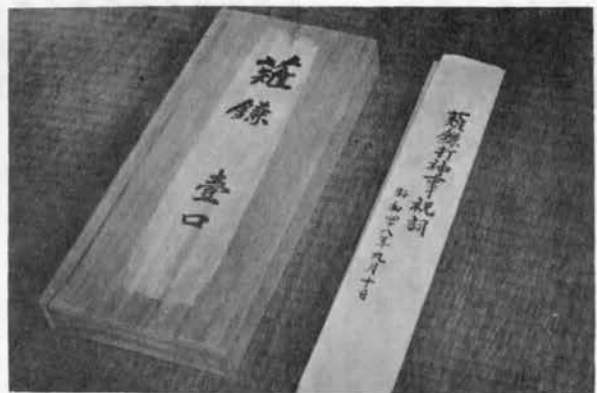 薙鎌　壹口
薙鎌打神事祝詞
昭和四十八年九月十日